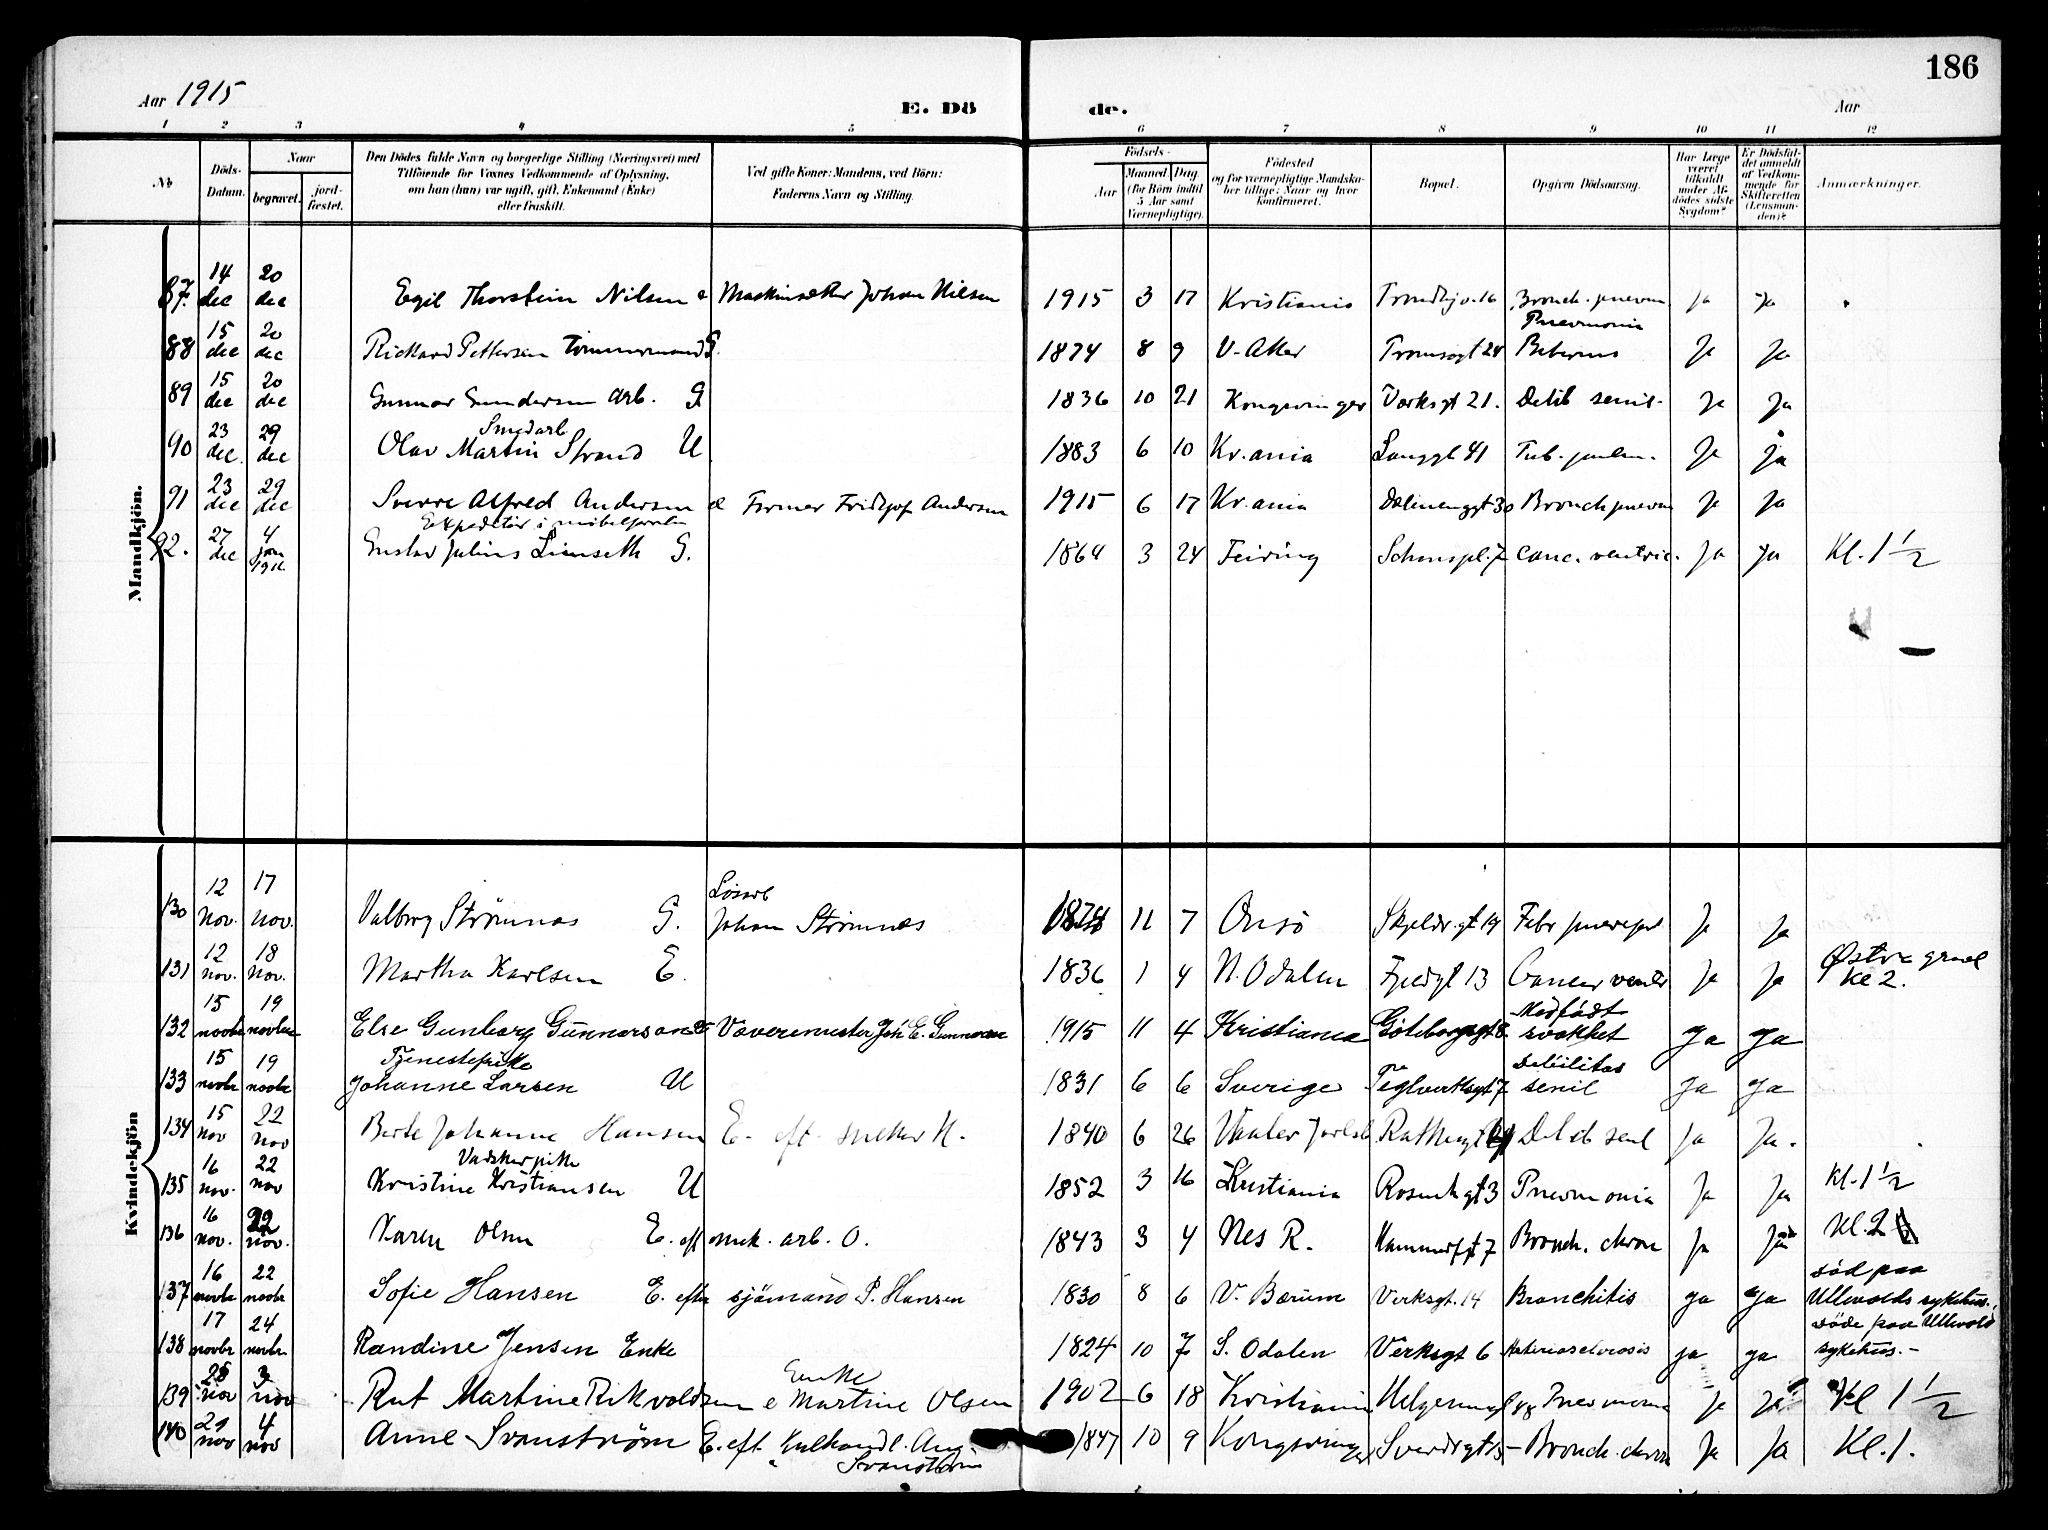 186
Aar 1915
E. Dö de.
Aar
1 2 3 4 5 6 7 8 9 10 11 12
No
Döds-Datum.
Naar
begravet. jord-fæstet.
Den Dödes fulde Navn og borgerlige Stilling (Næringsvei) med
Tilföiende for Voxnes Vedkommende af Oplysning,
om han (hun) var ugift, gift, Enkemand (Enke)
eller fraskilt.
Ved gifte Koner: Mandens, ved Börn:
Faderens Navn og Stilling.
Födsels-
Aar
Maaned Dag
(for Börn indtil
5 Aar samt
Værnepligtige).
Födested
og for værnepligtige Mandska-
ber tillige: Naar og hvor
konfirmeret.
Bopæl.
Opgiven Dödsaarsag.
Har Læge
været
tilkaldt
under Af-
dödes sidste
Sygdom?
Er Dödsfal-
det anmeldt
af Vedkom-
mende for
Skifteretten
(Lensman-
den)?
Anmærkninger.
Mandkjön.
87. 14 dec 20 dec Egil Thorstein Nilsen Johan Nilsen 1915 3 17 Kristiania Bronch. pneum ja ja
88 15 dec 20 dec Rickard Pettersen Tömmermand G. 1874 8 9 V. Aker Tromsøgt 24 Pneumonia ja ja
89 15 dec 20 dec Gunnar Gundersen Arb. G 1836 10 21 Kongsvinger Verksgt 21. Debil senil. ja ja
90 23 dec. 29 dec Smedarb Olav Martin Strand U 1883 6 10 Kr.ania Langgt 41 Tub. pulm. ja ja
91 23 dec 29 dec Sverre Alfred Andersen Former Fridtjof Andersen 1915 6 17 Kr.ania Dælenengt 30 Bronch pneum ja ja
92. 27 dec 4 jan Expeditør i Gustav Julius Limseth G. 1864 3 24 Feiring Schouspl. 7 Canc. ventric. ja ja Kl. 1 1/2
Kvindekjön
130 12 nov. 17 nov. Valborg Strømnæs G. Løsarb Johan Strømnæs 11 7 Onsö ja ja
131 12 nov. 18 nov. Martha Karlsen E. 1836 1 4 N. Odalen 13 Cancer ventr ja ja Østre gravl Kl 2.
132 15 novbr 19 novbr Else Gunborg Gunnarson Vævermester Joh. E. Gunnarson 1915 11 4 Kristiania Göteborggt 8 Medfödt svakhet ja ja
133 15 novbr 19 novbr Tjenestepike Johanne Larsen U 1831 6 6 Sverige Teglverksgt 7 Debilitas senil ja ja
134 15 nov 22 nov Berte Johanne Hansen E. eft. snekker H. 1840 6 26 Vaaler Jarlsb Debil senil ja ja.
135 16 nov. 22 nov Vaskerpike Kristine Kristiansen U 1852 3 16 Kristiania Rosenhgt 3 Pneumonia ja ja Kl. 1 1/2
136 16 nov. 22 nov. Karen Olsen E. eft mek. arb. O. 1843 3 4 Nes R. Hammerfgt 7 Bronch. chron ja ja Kl. 2
137 16 novbr 22 novbr Sofie Hansen E. efter sjömand P. Hansen 1830 8 6 V. Bærum Verksgt. 14 Bronchitis ja ja död paa Ullevolds sykehus.
138 17 novbr 24 novbr Randine Jensen Enke 1824 10 7 S. Odalen Verksgt 6 Arteriosclerosis ja ja döde paa Ullevold sykehus. -
139 nov 3 nov Rut Martine Rikvoldsen Enke Martine Olsen 1902 6 18 Kristiania Pneumonia ja ja Kl 1 1/2
140 29 nov 4 nov Anne Svanström E. eft. Kulhandl. Aug. Svanström 1847 10 9 Kongsvinger Sverdrgt 15 Bronch. chron ja ja Kl. 1.